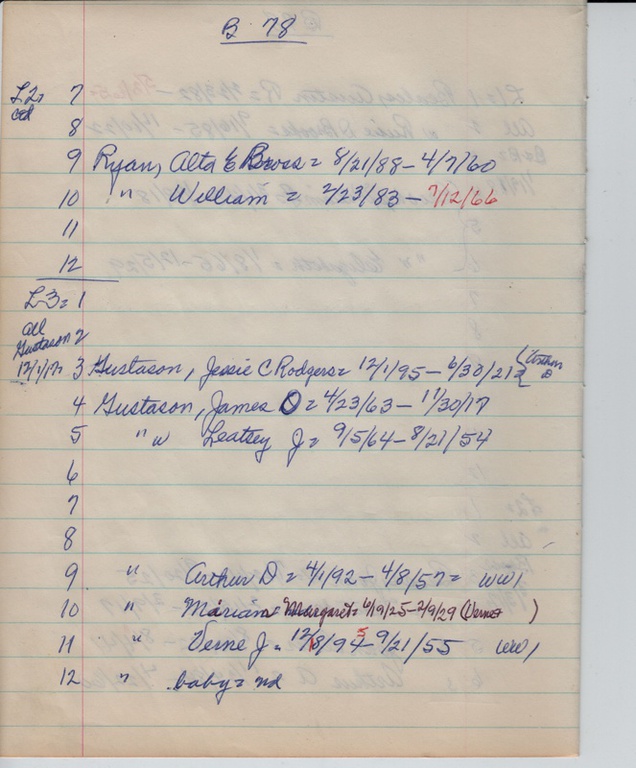 B 78
L2= 7
8
9 Ryan, Alta E Bowss = 8/21/88 - 4/7/60
10 " William = 2/23/83 - 7/12/66
11
12
L-3= 1
all
Gustason 2
12/1/17 3 Gustason, Jessie C Rodgers = 12/1/95 - 6/30/21 (Arthur D
4 Gustason, James O = 4/23/63 - 11/30/17
5 " w Leatsey J = 9/5/64 - 8/21/54
6
7
8
9 " Arthur D = 4/1/92 - 4/8/57 = WW1
10 " Marian Margaret = 4/9/25 - 2/9/29 (Verne )
11 " Verne J = 12/18/95 - 9/21/55 WW1
12 " baby = nd